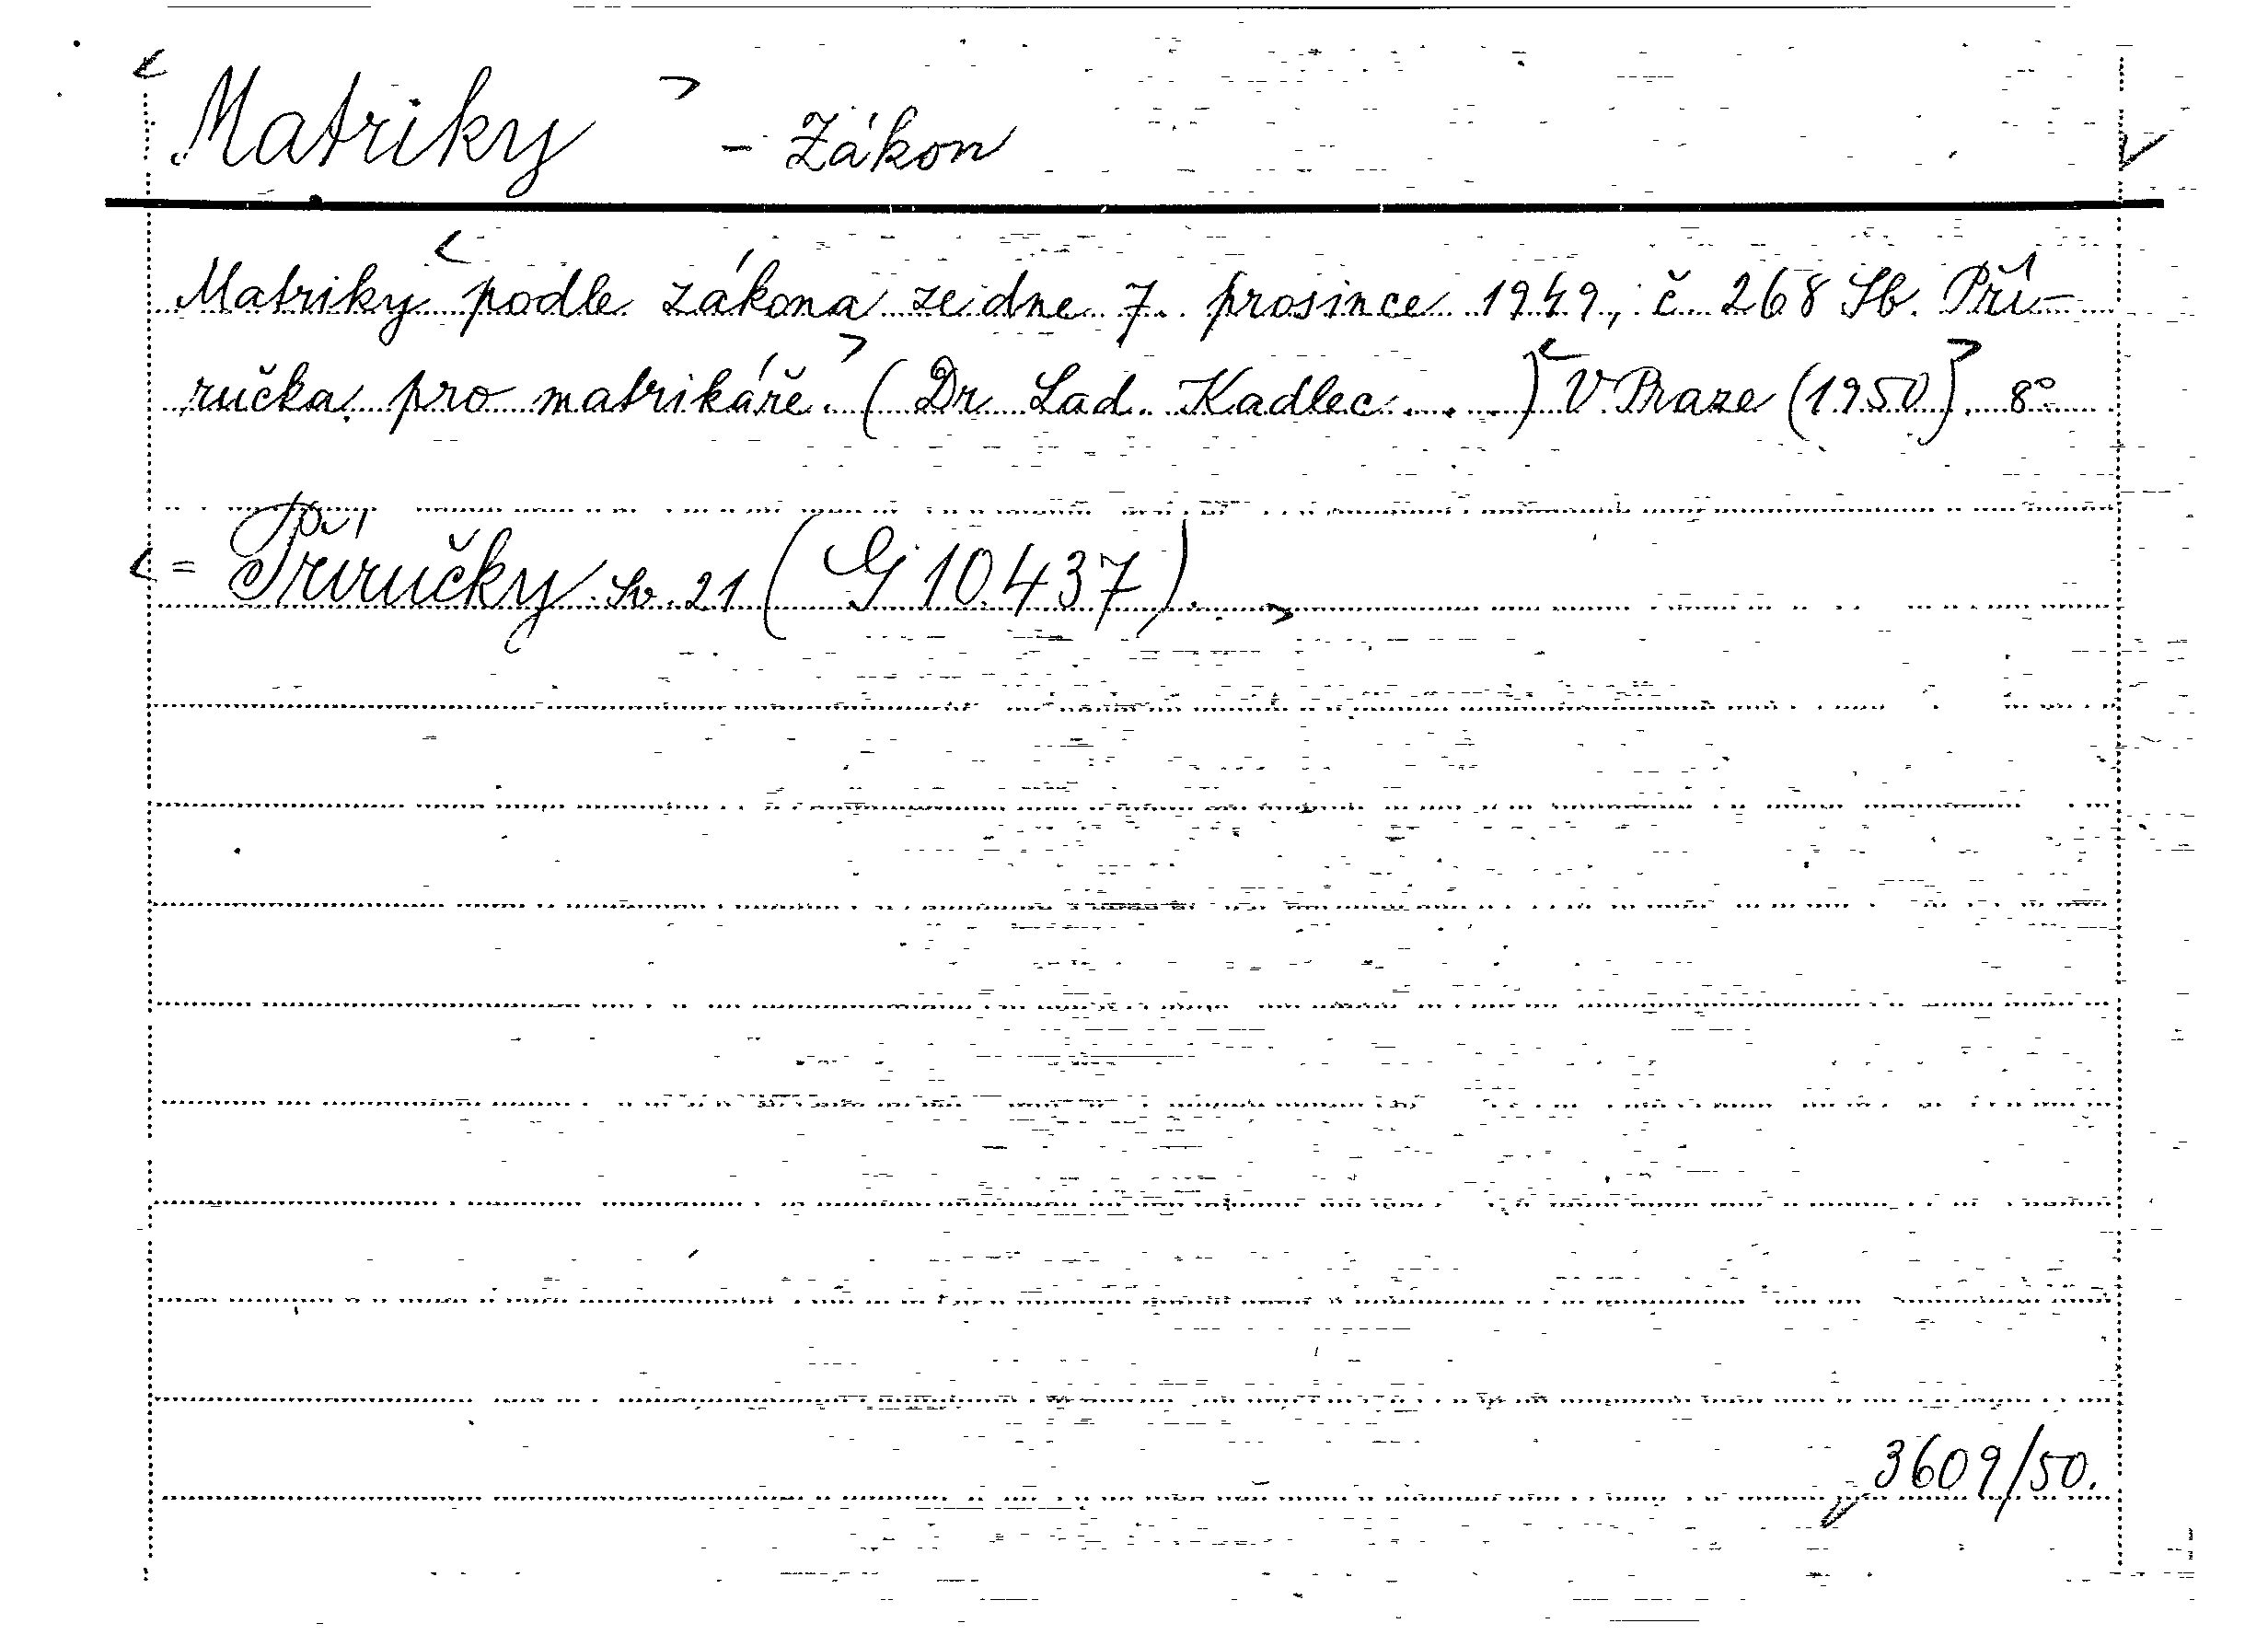 Matriky - Zákon
Matriky podle zákona ze dne 7. prosince 1949, č 268 Sb. Pří-
ručka pro matrikáře. (Dr Lad. Kadlec...) V Praze (1950). 8°
= Příručky sv. 21 (G 10.437).
3609/50.